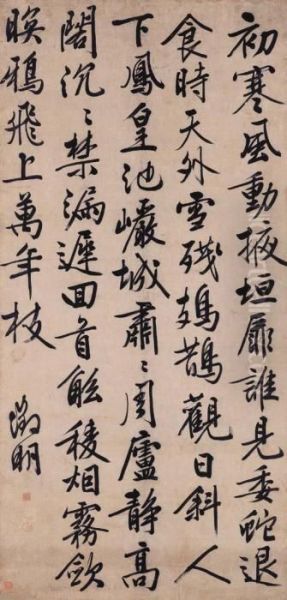 初寒風動掖垣扉誰見委蛇退
食時天外雪殘鳷鵲觀日斜人
下鳳皇池巖城肅〻周廬靜高
閣沉〻禁漏遲回首觚稜烟霧歛
暝鴉飛上萬年枝
徵明